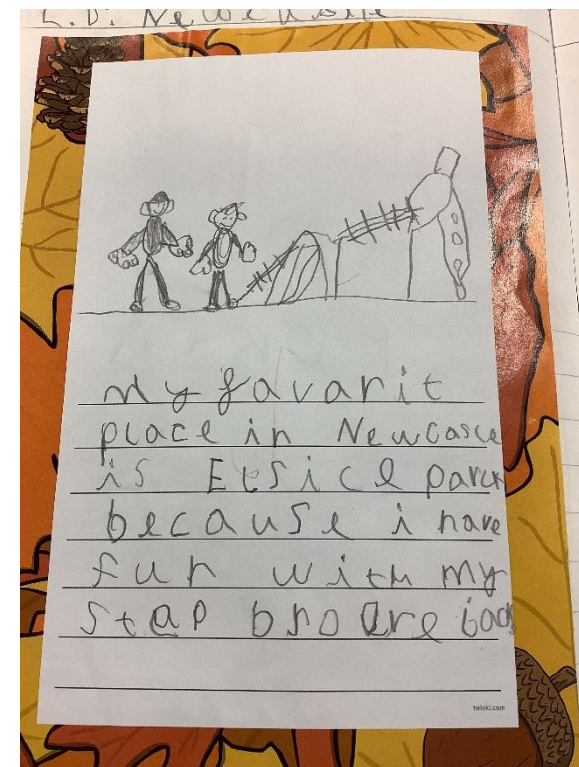 L.D. Newcastle
my favarit
place in Newcasle
is Etsicl parck
because i have
fun with my
stap bro are
twinkl.com